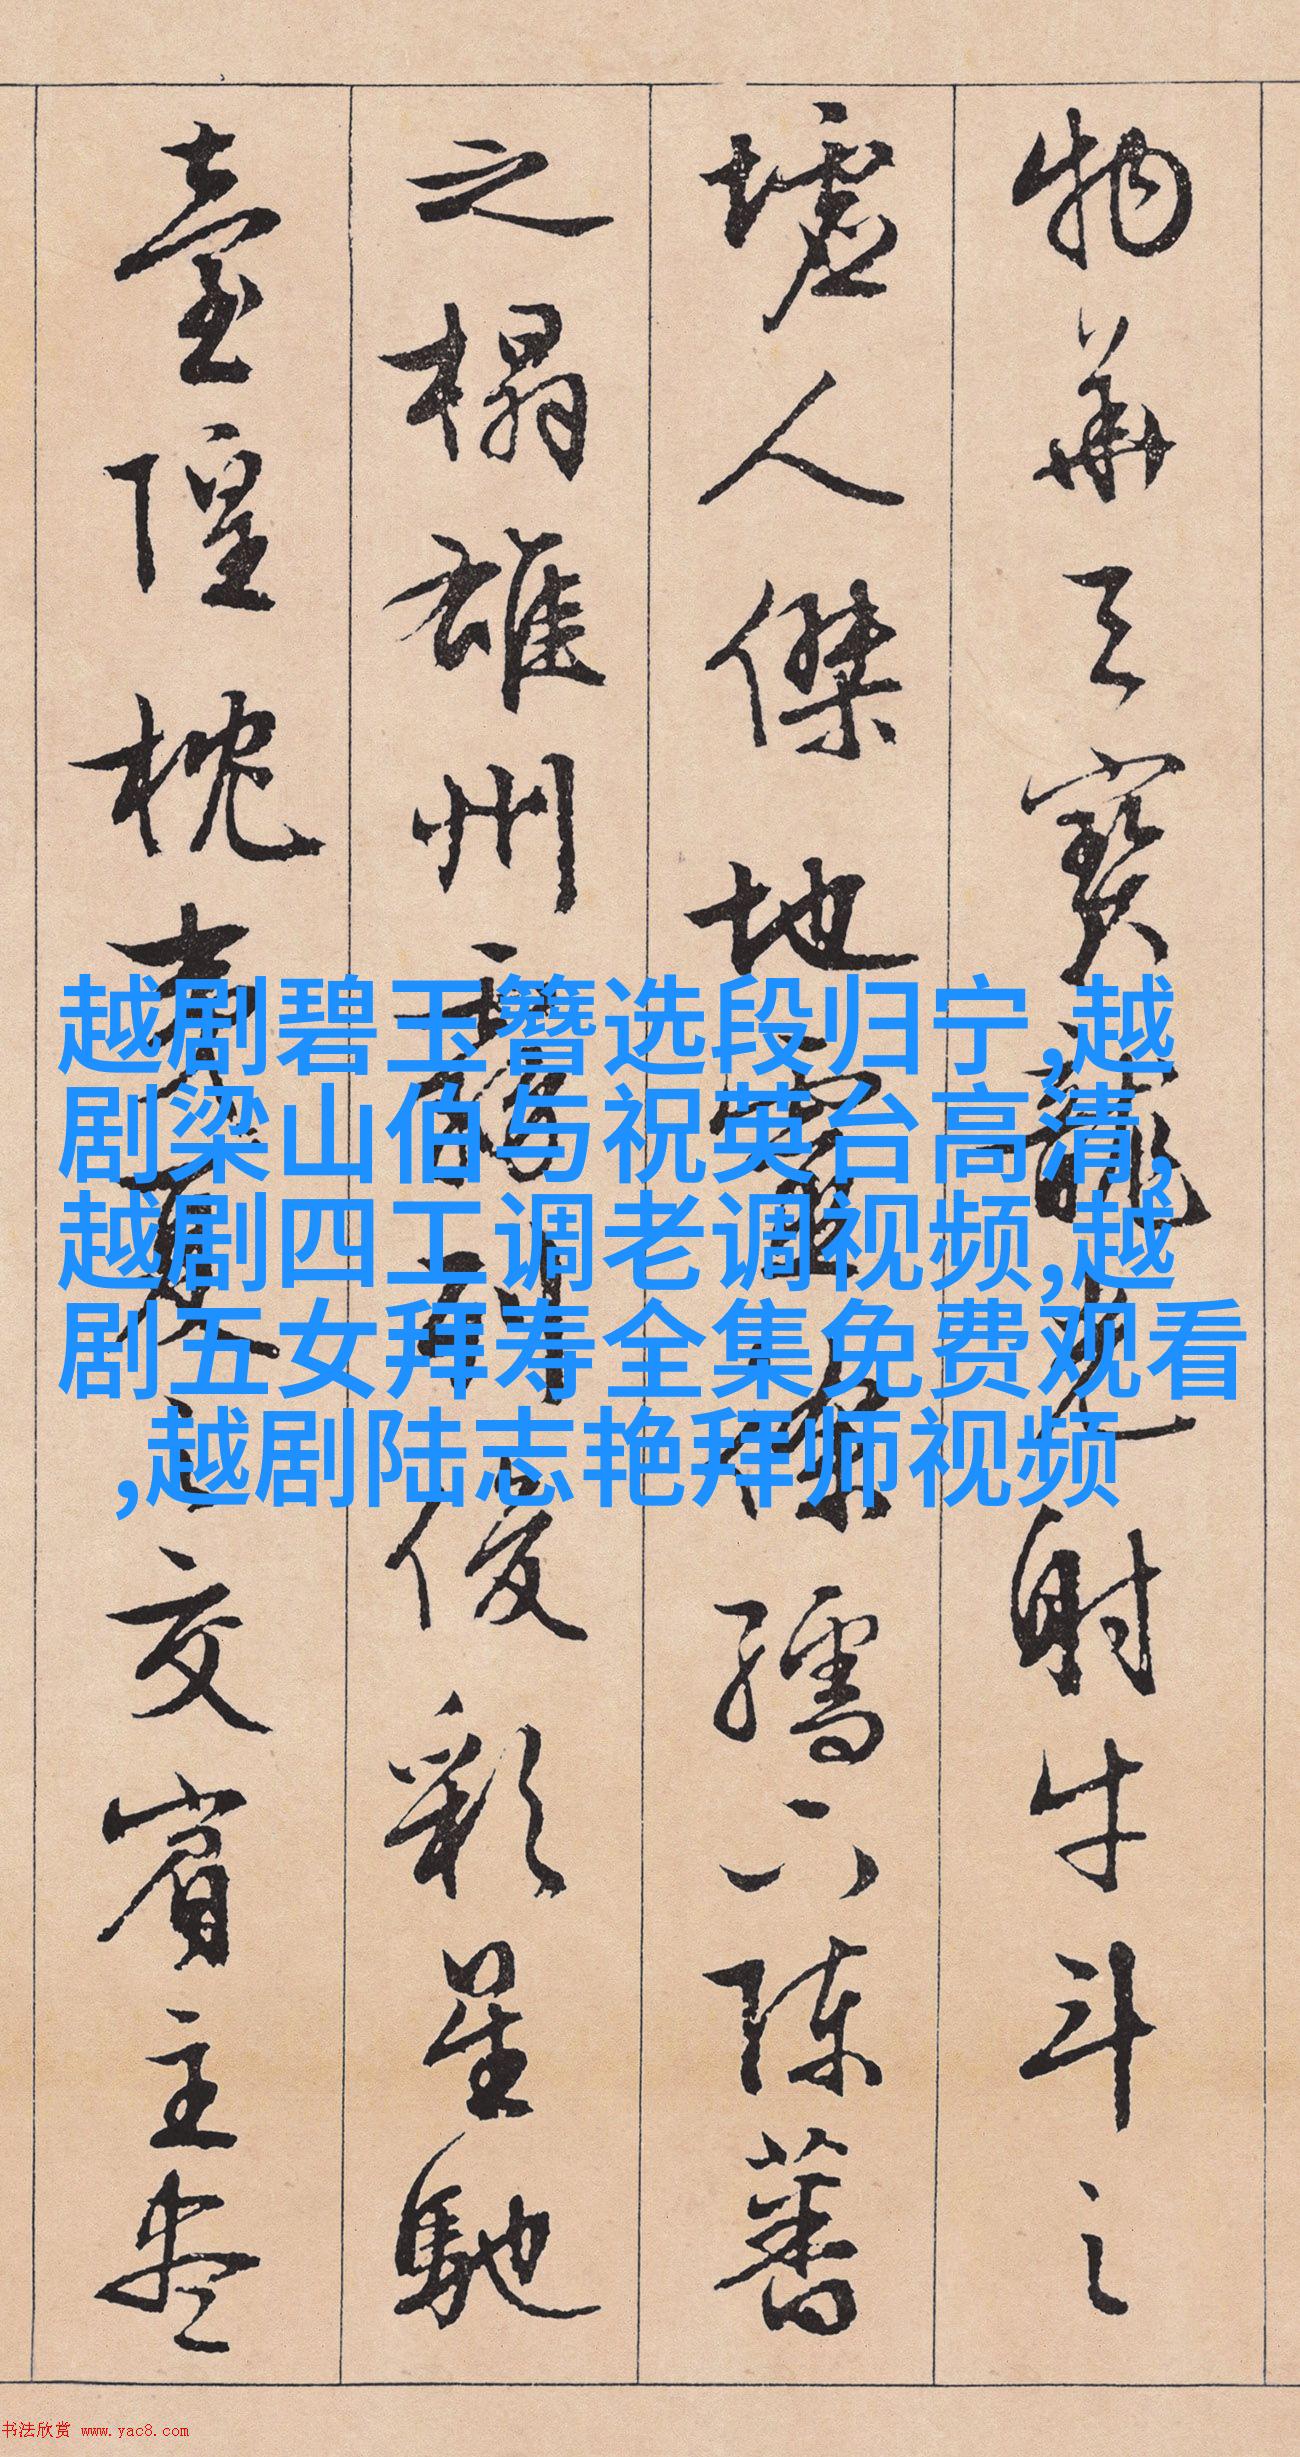 物華天寶龍光射牛斗之
墟人傑地靈徐孺下陳蕃
之榻雄州霧列俊彩星馳
臺隍枕夷夏之交賓主盡
越剧碧玉簪选段归宁,越
剧梁山伯与祝英台高清,
越剧四工调老调视频,越
剧五女拜寿全集免费观看
,越剧陆志艳拜师视频
书法欣赏 www.yac8.com